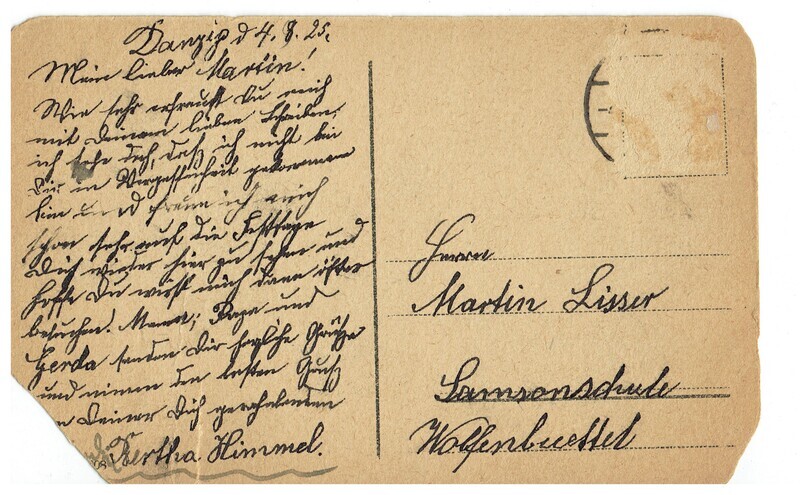 Danzig d 4. 8. 25.
Mein lieber Martin!
Wie sehr erfreust Du mich
mit Deinem lieben Schreiben,
ich sehe doch, daß ich nicht bei
Dir in Vergessenheit gekommen
bin und freue ich mich
schon sehr auf die Festtage
Dich wieder hier zu sehen und
hoffe Du wirst mich dann öfter
besuchen. Papa und
Gerda senden Dir herzliche Grüße
und nimm den besten Gruß
Deiner Dich
Bertha Himmel.
Herrn
Martin Lisser
Samsonschule
Wolfenbuettel